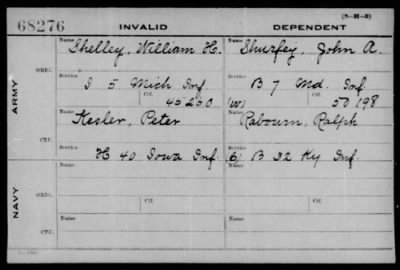 (3-H-3)
68276 INVALID DEPENDENT
Name Name
Shelley, William H. Shurfey, John A.
ORIG.
Service Service
I 5 Mich Inf B 7 Md. Inf
Ctf. Ctf.
45250 (W) 50198
ARMY
Name Name
Kesler, Peter Rabourn, Ralph
CTF.
Service Service
H 40 Iowa Inf (C) B 32 Ky Inf.
Name Name
ORIG.
Service Ctf. Service Ctf.
NAVY
Name Name
CTF.
Service Service